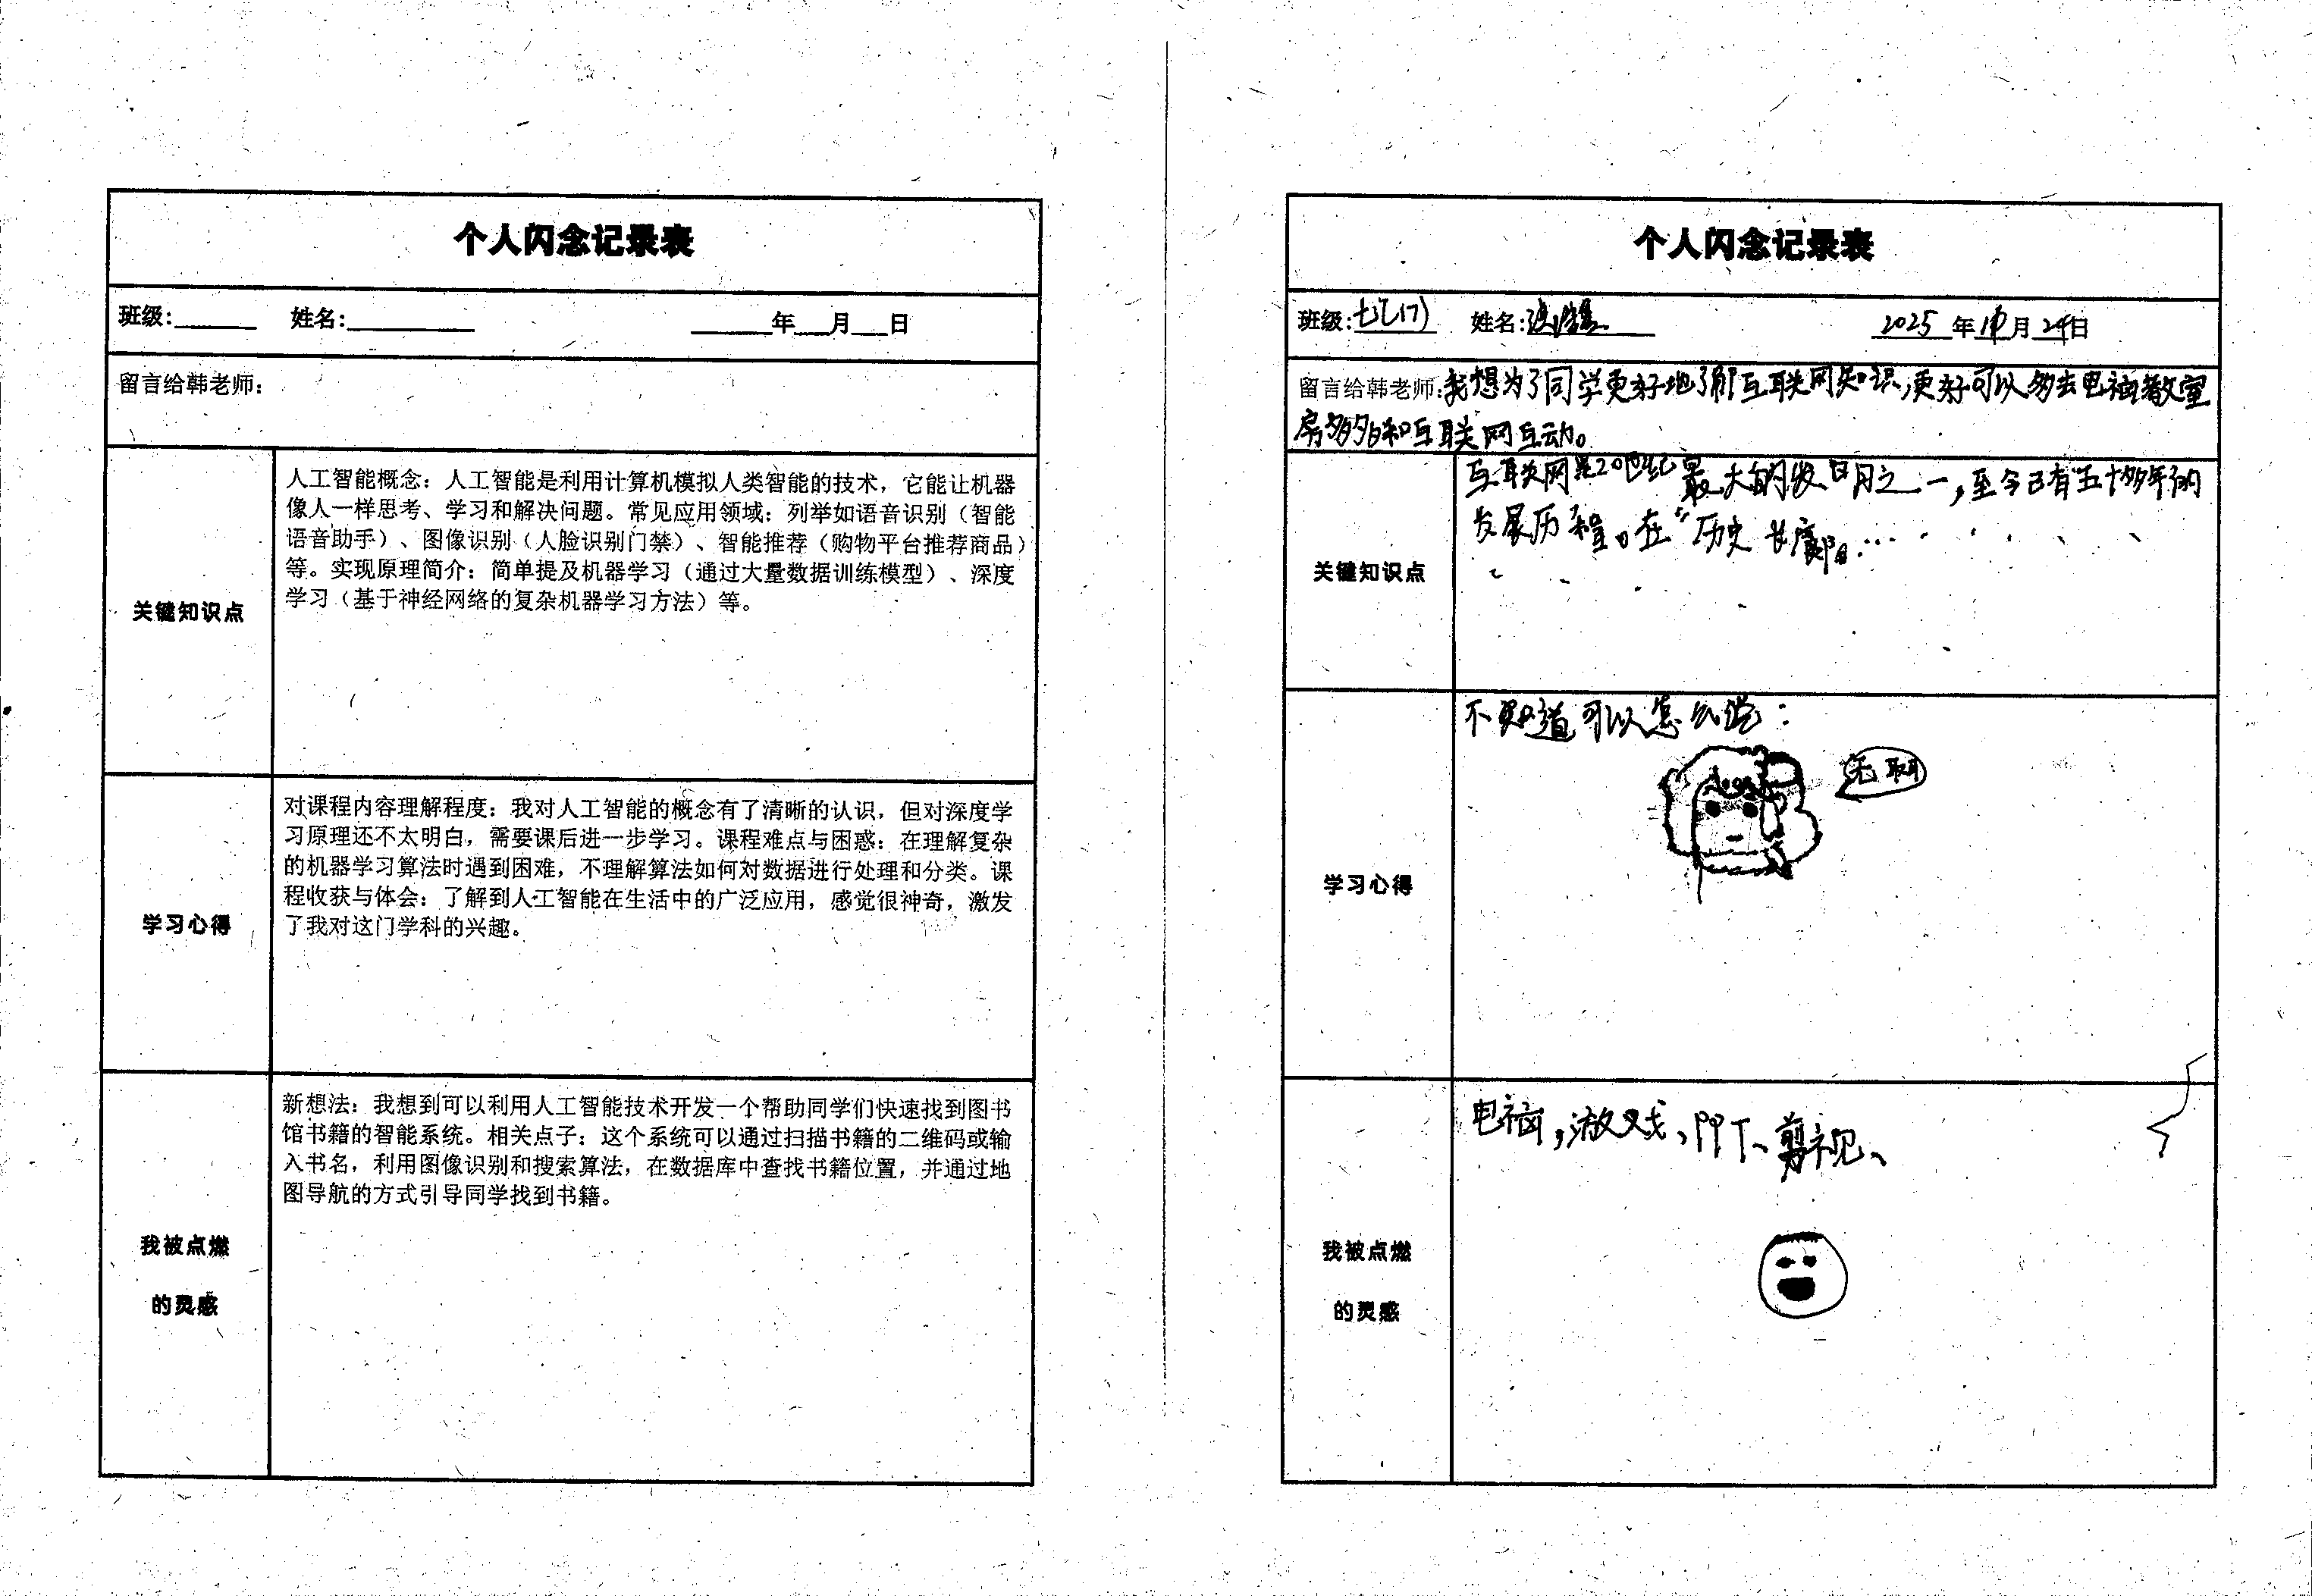 个人闪念记录表
班级:
姓名:
年 月 日
留言给韩老师:
关键知识点
人工智能概念：人工智能是利用计算机模拟人类智能的技术，它能让机器
像人一样思考、学习和解决问题。常见应用领域：列举如语音识别（智能
语音助手）、图像识别（人脸识别门禁）、智能推荐（购物平台推荐商品）
等。实现原理简介：简单提及机器学习（通过大量数据训练模型）、深度
学习（基于神经网络的复杂机器学习方法）等。
学习心得
对课程内容理解程度：我对人工智能的概念有了清晰的认识，但对深度学
习原理还不太明白，需要课后进一步学习。课程难点与困惑：在理解复杂
的机器学习算法时遇到困难，不理解算法如何对数据进行处理和分类。课
程收获与体会：了解到人工智能在生活中的广泛应用，感觉很神奇，激发
了我对这门学科的兴趣。
我被点燃
的灵感
新想法：我想到可以利用人工智能技术开发一个帮助同学们快速找到图书
馆书籍的智能系统。相关点子：这个系统可以通过扫描书籍的二维码或输
入书名，利用图像识别和搜索算法，在数据库中查找书籍位置，并通过地
图导航的方式引导同学找到书籍。
个人闪念记录表
班级:七(17)
姓名:
2025年 月24日
留言给韩老师:我想为了同学更好地了解互联网知识,更好可以多去电脑教室
房多多和互联网互动。
关键知识点
互联网是20世纪最大的发明之一,至今已有五十多年的
发展历程。在“历史长廊。……
学习心得
不知道可以怎么说:
无聊
我被点燃
的灵感
电脑,游戏、PPT、剪视、